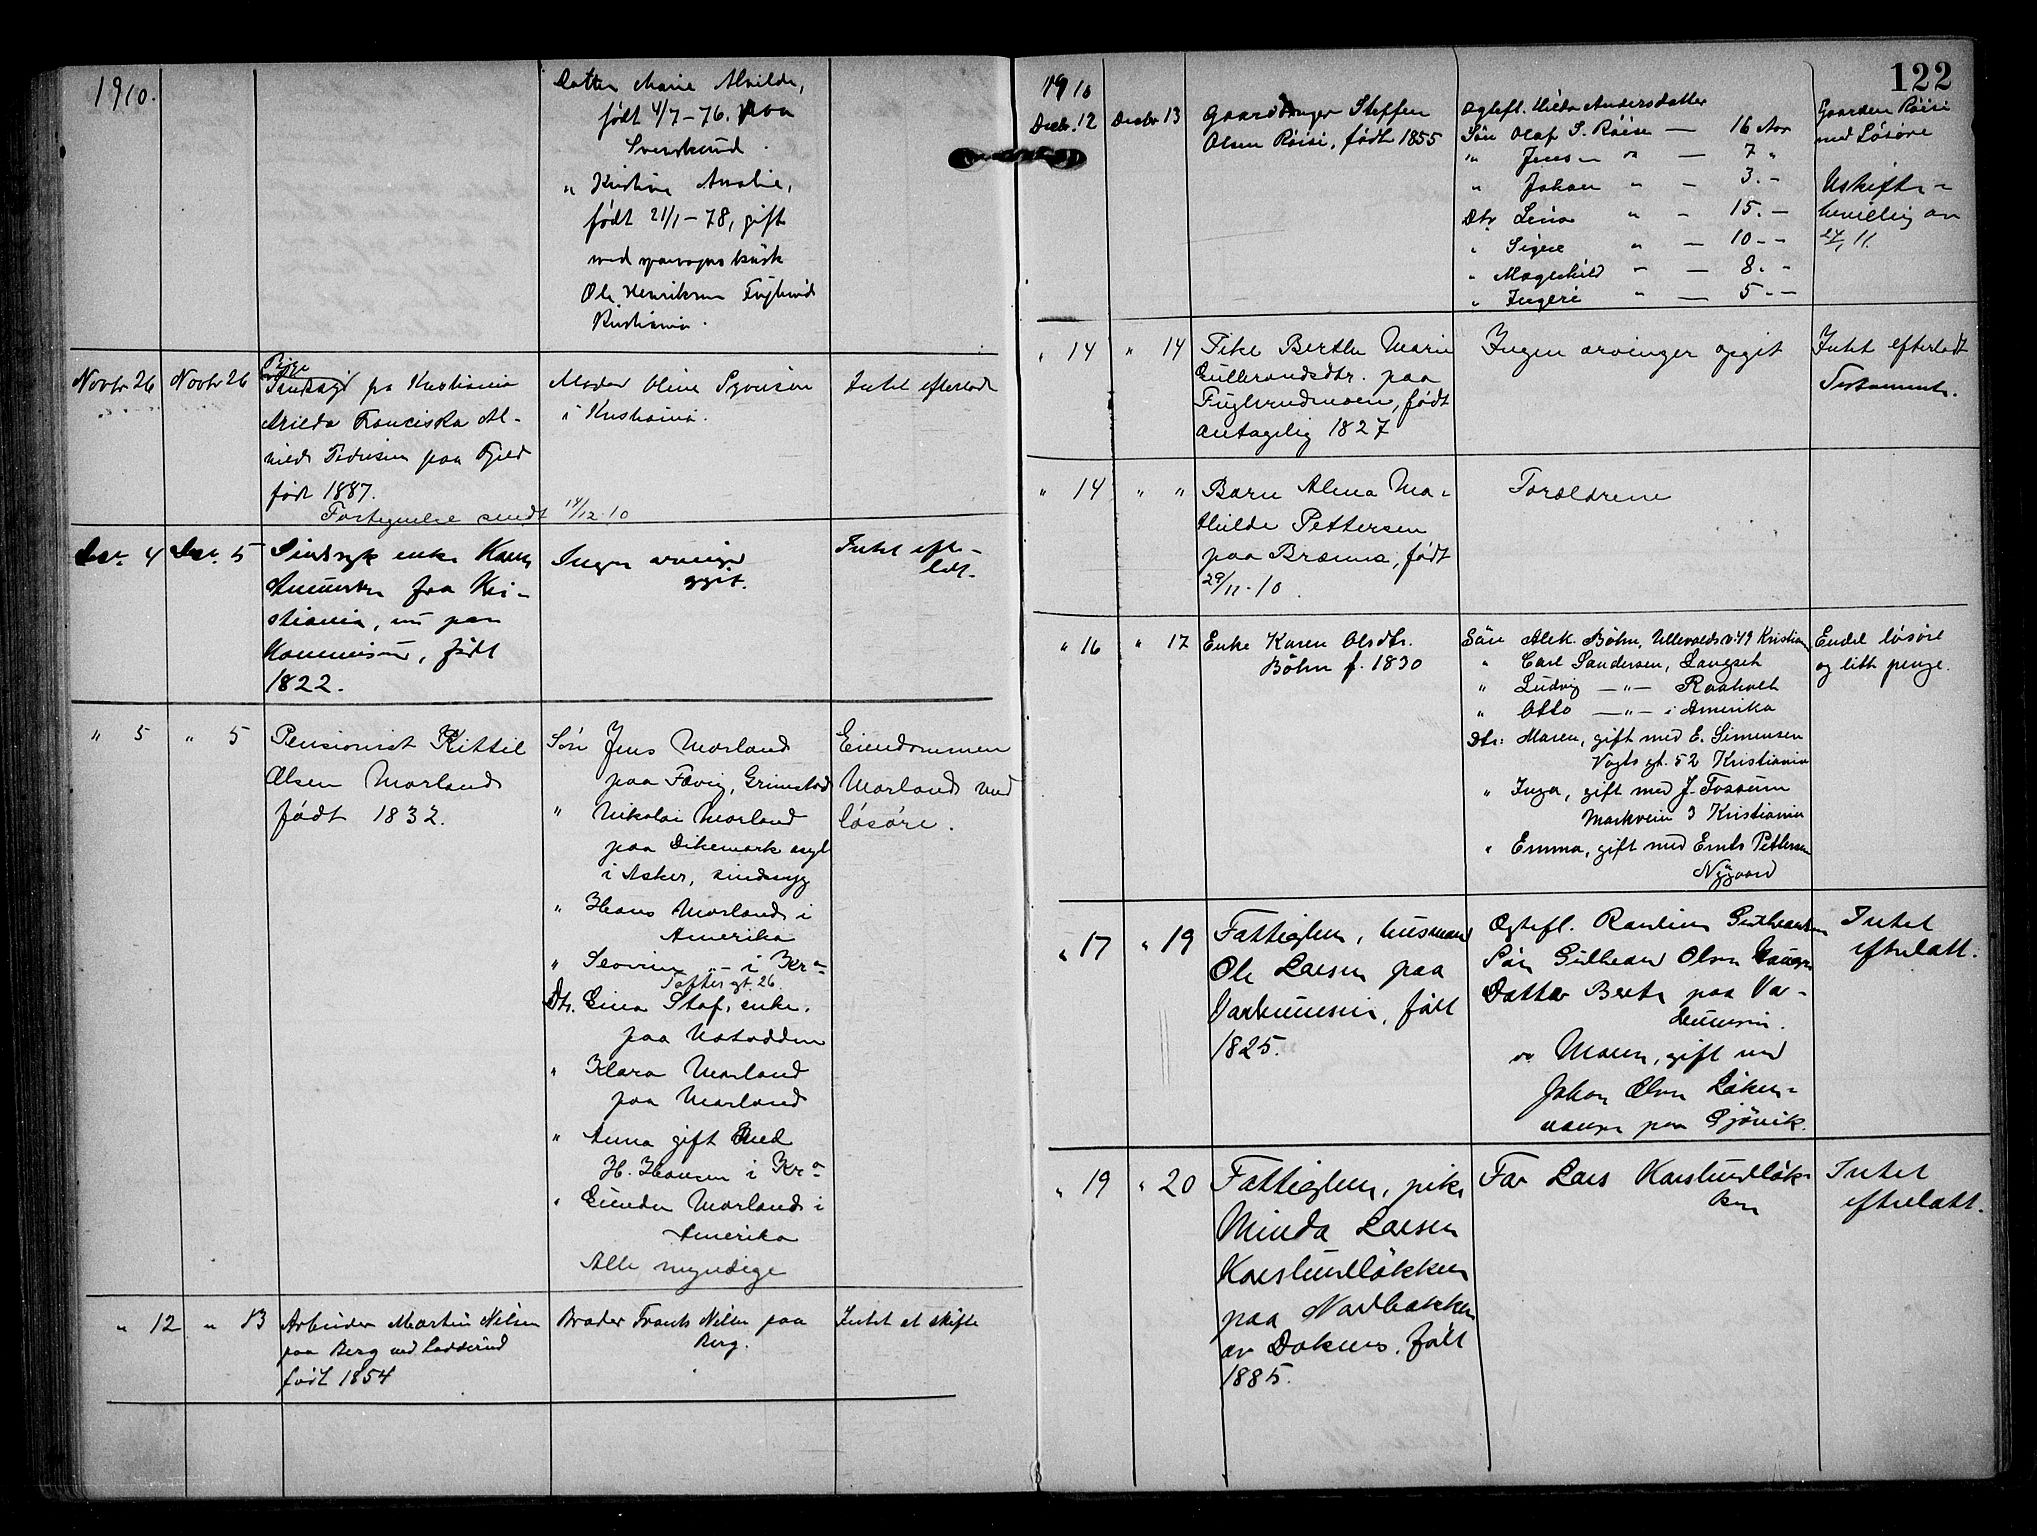 1910.
Datter Marie Alvilde,
født 4/7-76. paa
" Kristine Amalie,
født 21/1-78, gift
med
Ole Henriksen Fuglerud
Kristiania.
Novbr 26 Novbr 26 Pige
Sindssyg fra Kristiania
Arilda Franciska Al-
vilde Pedersen paa Fjeld
født 1887.
Moder Oline Syversen
i Kristiania.
Intet efterladt
Fortegnelse sendt 14/12-10
Der. 4 Der. 5 Sindssyk enke Karen
Amundsen fra Kri-
stiania, nu paa
født
1822.
Ingen arvinger
opgit.
Intet efter-
ladt.
" 5 " 5 Pensionist Kittil
Olsen Morland
født 1832.
Søn Jens Morland
paa Fævig, Grimstad
" Nikolai Morland
paa Dikemark asyl
i Asker, sindssyg
" Hans Morland i
Amerika
" Severin -"- i Kra
Toftes gt. 26.
Dtr. Gina Staf, enke,
paa Notodden
" Klara Morland
paa Morland
" Anna gift med
H. Hansen i Kra
" Gunder Morland i
Amerika
Alle myndige
Eiendommen
Morland med
løsøre.
" 12 " 13 Arbeider Martin Nilsen
paa Berg ved Ladderud
født 1854
Broder Frants Nilsen paa
Berg.
Intet at skifte
122
1910
Decbr. 12 Decbr 13 Gaardbruger Steffen
Olsen Røisi, født 1855
Egtefl. Hilda Andersdatter
Søn Olaf S. Røise — 16 Aar
" Jens " — 7 "
" Johan " — 3 -
Dtr Lina " - 15. -
" Signe " — 10 - -
" Magnhild " — 8. -
" Ingeri " — 5 - -
Gaarden Røisi
med Løsøre
Uskifte-
bevilling av
27/11.
" 14 " 14 Pike Berthe Marie
Gulbrandsdtr. paa
Fuglerudmoen, født
antagelig 1827
Ingen arvinger opgit
Intet efterladt
Testament.
" 14 " " Barn Alma Ma-
thilde Pettersen
paa Brænna, født
29/11-10.
Forældrene
" 16 " 17 Enke Karen Olsdtr.
Bøhn f. 1830
Søn Alek. Bøhn, Ullevoldsv. 49 Kristian
" Carl Sandersen, Langset
" Ludvig —"— Raaholt
" Otto —"— i Amerika
Dtr: Maren, gift med E. Simensen
Vogts gt. 52 Kristiania
" Inga, gift med J. Fossum
Markveien 3 Kristiania
" Emma, gift med Ernts Pettersen
Nygaard
Endel løsøre
og litt penge.
" 17 " 19 Fattiglem, husmand
Ole Larsen paa
født
1825.
Egtefl. Pauline
Søn Gulbrand Olsen
Datter Berte paa Va-
" Maren, gift med
Johan Olsen Løken-
hauger paa Gjøvik.
Intet
efterlatt.
" 19 " 20 Fattiglem, pike
Minda Larsen
Karlsrudløkken
paa Nordbakken
av Doknes, født
1885.
Far Lars Karlsrudløk-
ken
Intet
efterlatt.